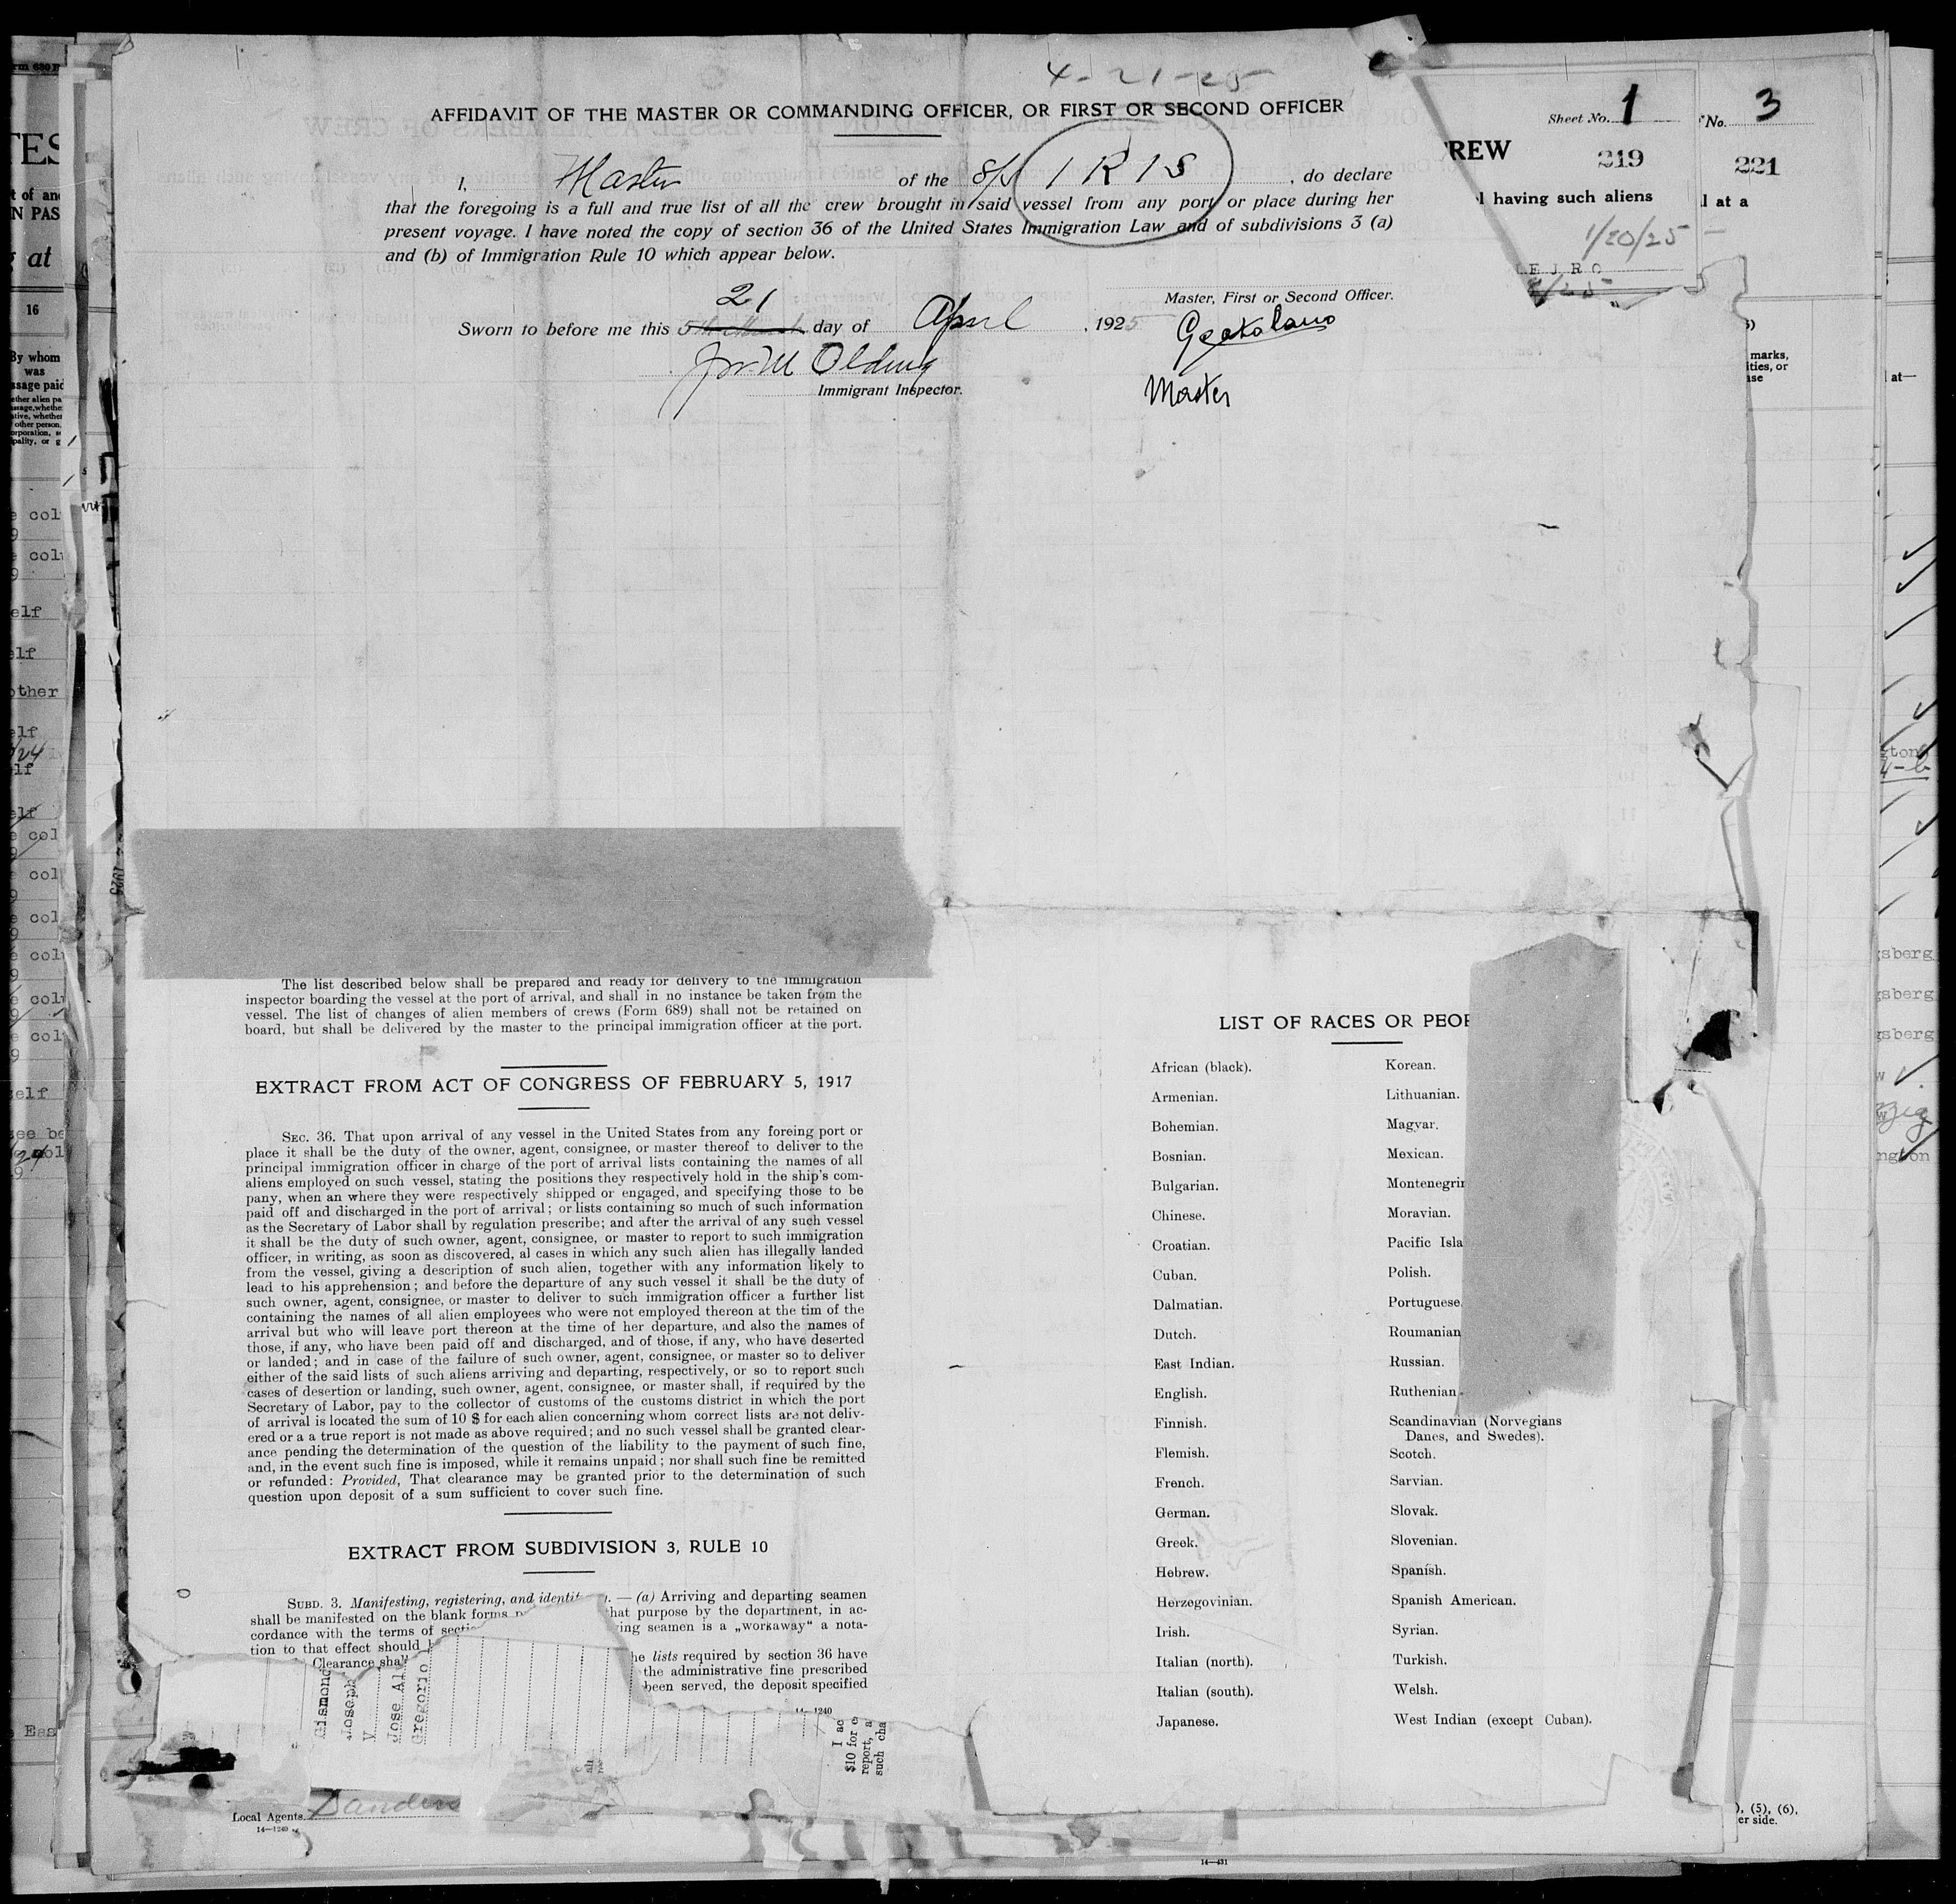 4-21-25
AFFIDAVIT OF THE MASTER OR COMMANDING OFFICER, OR FIRST OR SECOND OFFICER
I, Master of the S/S IRIS, do declare
that the foregoing is a full and true list of all the crew brought in said vessel from any port or place during her
present voyage. I have noted the copy of section 36 of the United States Immigration Law and of subdivisions 3 (a)
and (b) of Immigration Rule 10 which appear below.
Master, First or Second Officer.
21
Sworn to before me this day of April, 1925
Olding
Immigrant Inspector.
Master
Sheet No. 1
No. 3
REW
219
221
having such aliens
l at a
1/20/25
marks,
ities, or
at—
rm 630
TES
t of an
N PAS
at
16
By whom
was
ssage paid
The list described below shall be prepared and ready for delivery to the immigration
inspector boarding the vessel at the port of arrival, and shall in no instance be taken from the
vessel. The list of changes of alien members of crews (Form 689) shall not be retained on
board, but shall be delivered by the master to the principal immigration officer at the port.
EXTRACT FROM ACT OF CONGRESS OF FEBRUARY 5, 1917
SEC. 36. That upon arrival of any vessel in the United States from any foreing port or
place it shall be the duty of the owner, agent, consignee, or master thereof to deliver to the
principal immigration officer in charge of the port of arrival lists containing the names of all
aliens employed on such vessel, stating the positions they respectively hold in the ship's com-
pany, when an where they were respectively shipped or engaged, and specifying those to be
paid off and discharged in the port of arrival; or lists containing so much of such information
as the Secretary of Labor shall by regulation prescribe; and after the arrival of any such vessel
it shall be the duty of such owner, agent, consignee, or master to report to such immigration
officer, in writing, as soon as discovered, al cases in which any such alien has illegally landed
from the vessel, giving a description of such alien, together with any information likely to
lead to his apprehension; and before the departure of any such vessel it shall be the duty of
such owner, agent, consignee, or master to deliver to such immigration officer a further list
containing the names of all alien employees who were not employed thereon at the tim of the
arrival but who will leave port thereon at the time of her departure, and also the names of
those, if any, who have been paid off and discharged, and of those, if any, who have deserted
or landed; and in case of the failure of such owner, agent, consignee, or master so to deliver
either of the said lists of such aliens arriving and departing, respectively, or so to report such
cases of desertion or landing, such owner, agent, consignee, or master shall, if required by the
Secretary of Labor, pay to the collector of customs of the customs district in which the port
of arrival is located the sum of 10 $ for each alien concerning whom correct lists are not deliv-
ered or a a true report is not made as above required; and no such vessel shall be granted clear-
ance pending the determination of the question of the liability to the payment of such fine,
and, in the event such fine is imposed, while it remains unpaid; nor shall such fine be remitted
or refunded: Provided, That clearance may be granted prior to the determination of such
question upon deposit of a sum sufficient to cover such fine.
EXTRACT FROM SUBDIVISION 3, RULE 10
SUBD. 3. Manifesting, registering, and identif — (a) Arriving and departing seamen
shall be manifested on the blank forms hat purpose by the department, in ac-
cordance with the terms of section ing seamen is a „workaway“ a nota-
tion to that effect should
Clearance shal he lists required by section 36 have
the administrative fine prescribed
been served, the deposit specified
14—1240
Gismond
Joseph
V
Jose Al
Gregorio
I ac
$10 for e
report, a
such cha
Local Agents. Sanders
14—1240
LIST OF RACES OR PEOP
African (black).
Armenian.
Bohemian.
Bosnian.
Bulgarian.
Chinese.
Croatian.
Cuban.
Dalmatian.
Dutch.
East Indian.
English.
Finnish.
Flemish.
French.
German.
Greek.
Hebrew.
Herzegovinian.
Irish.
Italian (north).
Italian (south).
Japanese.
Korean.
Lithuanian.
Magyar.
Mexican.
Montenegrin
Moravian.
Pacific Isla
Polish.
Portuguese.
Roumanian
Russian.
Ruthenian
Scandinavian (Norvegians
Danes, and Swedes).
Scotch.
Sarvian.
Slovak.
Slovenian.
Spanish.
Spanish American.
Syrian.
Turkish.
Welsh.
West Indian (except Cuban).
), (5), (6),
er side.
14—431